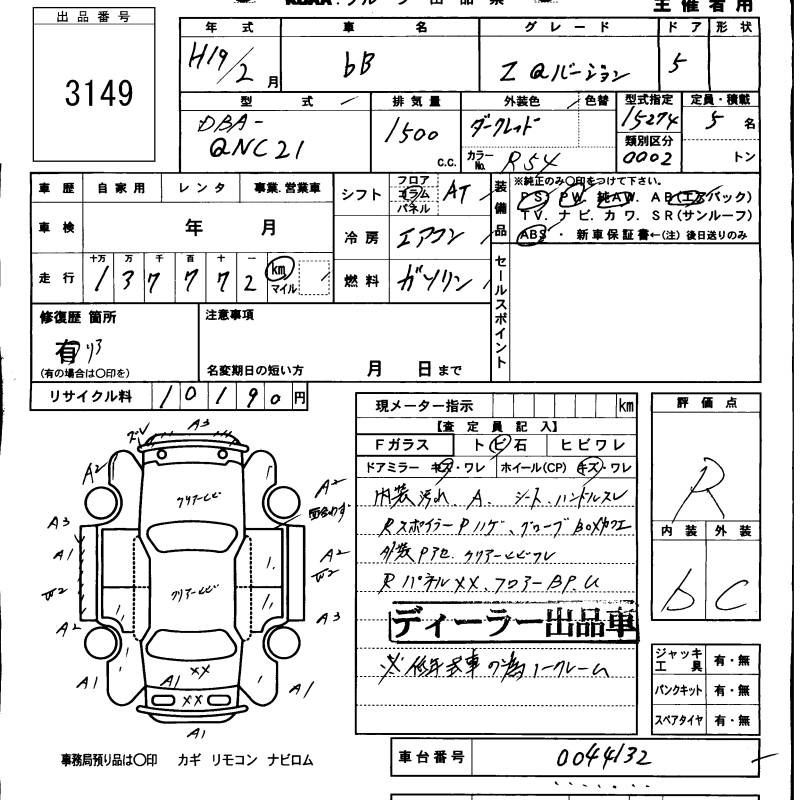 主催者用
出品番号
3149
年式 車名 グレード ドア 形状
H19/2月 bB Z Qバージョン 5
型式 排気量 外装色 色替 型式指定 定員・積載
DBA-QNC21 1500 c.c. ダークレッド 15274 5名
カラーNo. R54 類別区分 0002 トン
車歴 自家用 レンタ 事業.営業車
シフト フロア コラム パネル AT
装備品 ※純正のみ〇印をつけて下さい。
PS. PW. 純AW. AB(エアバック)
TV. ナビ. カワ. SR(サンルーフ)
ABS・新車保証書←(注)後日送りのみ
車検 年 月
冷房 エアコン
走行 十万 万 千 百 十 一
137772 km マイル
燃料 ガソリン
セールスポイント
修復歴 箇所 注意事項
有 リア
(有の場合は〇印を) 名変期日の短い方 月 日まで
リサイクル料 10190円
現メーター指示 km
評価点
R
【査定員記入】
Fガラス トビ石 ヒビワレ
ドアミラー キズ・ワレ ホイール(CP) キズ・ワレ
内装汚れ、A. シート、ハンドルスレ
Rスポイラー Pハゲ、グローブBOX
外装Pアセ クリアーヒビワレ
Rパネル××、フロアーBP.U
ディーラー出品車
ノークレーム
内装 外装
b C
A3
ズレ
A2
クリアーヒビ
A2
A3
A1
A2
W2
クリアーヒビ
A2
W2
A2
A3
A1
××
A1
××
A1
A1
ジャッキ工具 有・無
パンクキット 有・無
スペアタイヤ 有・無
事務局預り品は〇印 カギ リモコン ナビロム
車台番号 0044132